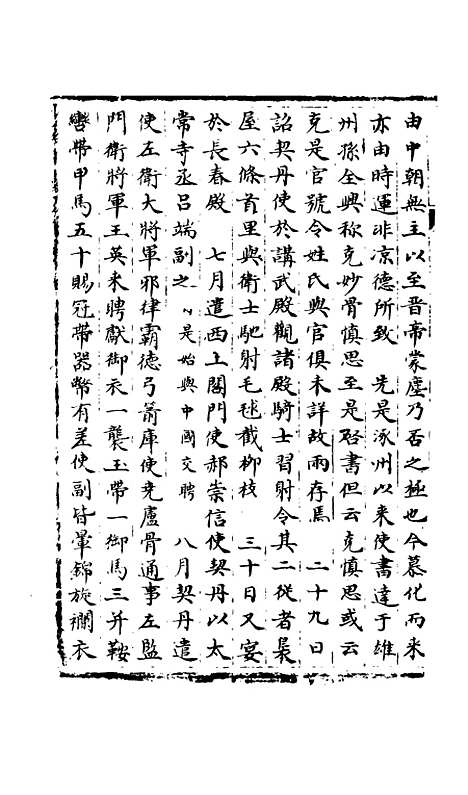 由中朝無主以至晋帝蒙塵乃否之極也今慕化而来
亦由時運非凉德所致　先是涿州以来使書達于雄
州孫全興称克妙骨慎思至是啓書但云克慎思或云
克是官號今姓氏與官俱未詳故兩存焉　二十九日
詔契丹使於講武殿觀諸殿騎士習射令其二從者褭
屋六條首里與衛士馳射毛毬截柳枝　三十日又宴
於長春殿　七月遣西上閤門使郝崇信使契丹以太
常寺丞吕端副之　是始與中國交聘　八月契丹遣
使左衛大將軍邪律霸德弓箭庫使尭盧骨通事左監
門衛將軍王英来聘獻御衣一襲玉帶一御馬三并鞍
轡带甲馬五十賜冠带器幣有差使副皆暈錦旋襴衣